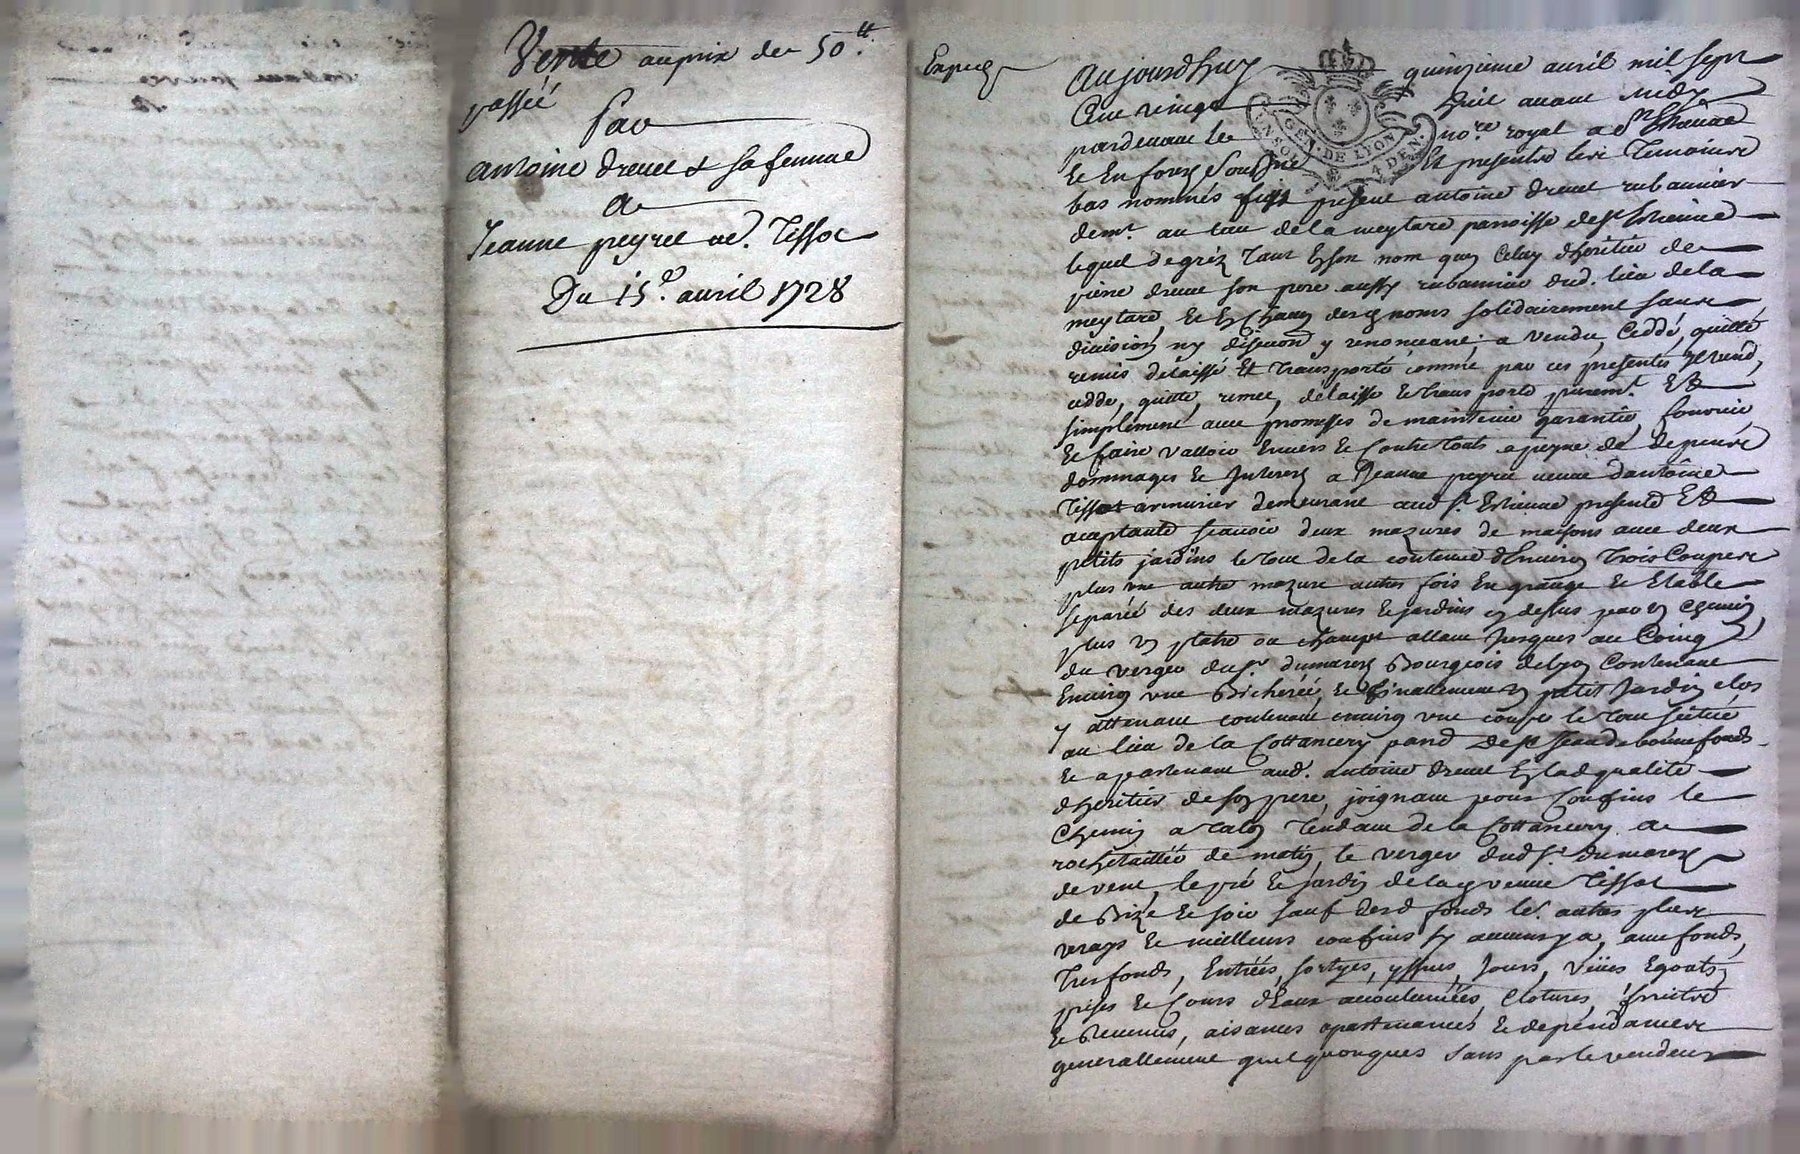 Vente au prix de 50.tt
passée
par
antoine dreuet & sa femme
a
Jeanne peyret ve. Tissot
Du 15e. auril 1728
Exped
Aujourdhuy quinzieme auril mil sept
Cent vingt huit auant midy
pardeuant le no.re royal a St. Etienne
GEN. DE LYON
En forez soubsné Et presents les Temoins
bas nommés fust present antoine dreuet rubannier
demt. au lieu de la meytare paroisse de St. Estienne
lequel de gréz tant En son nom que Celuy dheritier de
pierre dreuet son pere aussy rubannier dud. lieu de la
meytare, Et En Chacun desd. noms solidairement sans
diuision ny discution y renonceant, a vendu Ceddé, quitté
remis delaissé Et transporté comme par ces presentes Il vend,
cedde, quitte, remet, delaisse Et transporte puremt. Et
simplement auec promesses de maintenir garantir, fournir
Et faire valloir Enuers Et Contre touts a peyne de depens
dommages Et Interest a Jeanne peyret veuue dantoine
Tissot armurier demeurant aud St. Estienne presente Et
aceptante scauoir deux mazures de maisons auec deux
petits jardins le tout de la contenue dEnuiron Trois Couppes
plus vne autre mazure autres fois En grange Et Etable
separée des deux mazures Et jardins cy dessus par vn Chemin,
plus vn platre ou champt allant Jusques au Coing
du verger du Sr. dumarest Bourgeois de Lyon Contenant
Enuiron vne Bicherée, Et finallement vn petit Jardin clos
y attenant contenant enuiron vne coupe le tout scitué
au lieu de la Cottancery parr. de St. Jean de bonnefonds
Et apartenant aud. antoine dreuet En lad qualité
dheritier de son pere, joignant pour Confins le
Chemin a talon tendant de la Cottancery a
rochetaillée de matin, le verger dud Sr. dumarest
de vent, le pré Et jardin de lad veuue Tissot
de Bize Et soir sauf desd fonds les autres plus
vrays Et meilleurs confins sy aucuns y a, auec fonds,
Tresfonds, Entrées, sortyes, yssues, Jours, Veües Egoats,
prises Et Cours dEaux accoutumées, Clotures, fruits
Et Reuenus, aisances apartenances Et dependances
generallement quelquonques sans par le vendeur